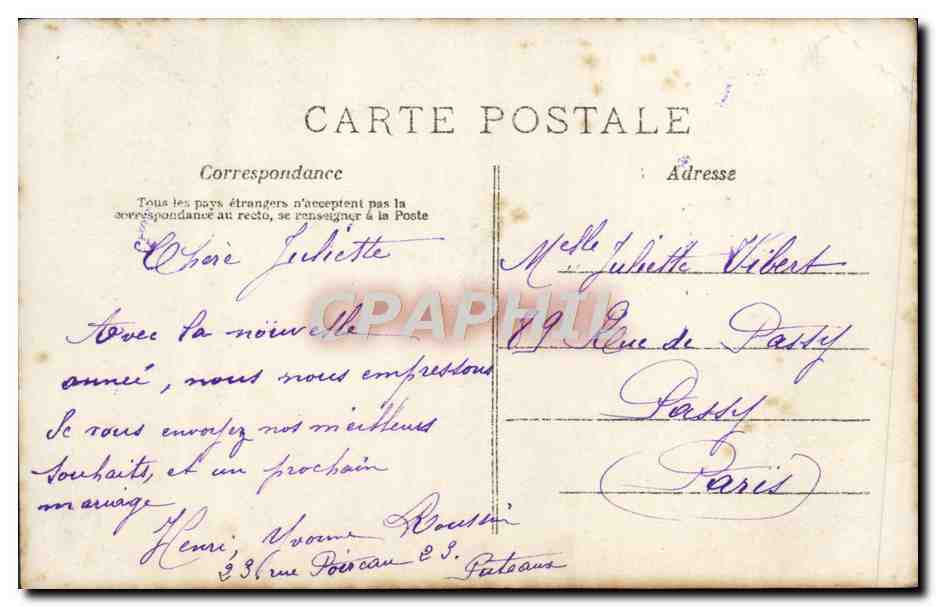 CARTE POSTALE
Correspondance
Tous les pays étrangers n'acceptent pas la
correspondance au recto, se renseigner à la Poste
Adresse
Chère Juliette
Avec la nouvelle
année, nous nous empressons
de vous envoyez nos meilleurs
souhaits, et un prochain
mariage
Henri, Yvonne Roussin
23 rue Poireau 23.
Puteaux
Melle Juliette Vibert
89 Rue de Passy
Passy
(Paris)
CPAPHIL